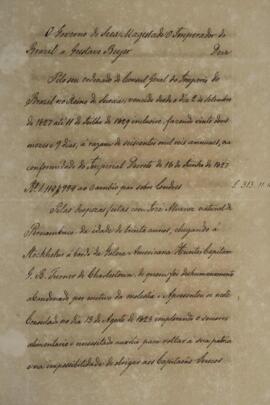 O Governo de Sua Magestade O Imperador do
Brazil a Gustavo Beyer Deve
Pelo seu ordenado de Consul Geral do Imperio do
Brazil no Reino da Suecia, vencido desde o dia 2 de Setembro
de 1827 até 11 de Julho de 1829 inclusive, fazendo vinte dous
mezes e 9 dias, á razão de seiscentos mil reis annuaes, na
conformidade do Imperial Decreto de 16 de Junho de 1827
ao cambio par sobre Londres £ 313. 11.
Pelas despezas feitas com José Alvares natural de
Pernambuco da idade de vinte annos, chegando a
Stockholm á bordo da Galera Americana Hunter Capitam
G. B. Turner de Charlestown, de quem foi deshumanamente
abandonado por motivo da molestia. Apresentou-se neste
Consulado no dia 13 de Agosto de 1828 implorando o soccorro
alimentario e necessitado auxilio para voltar a sua patria
e na impossibilidade de obrigar aos Capitaens Suecos